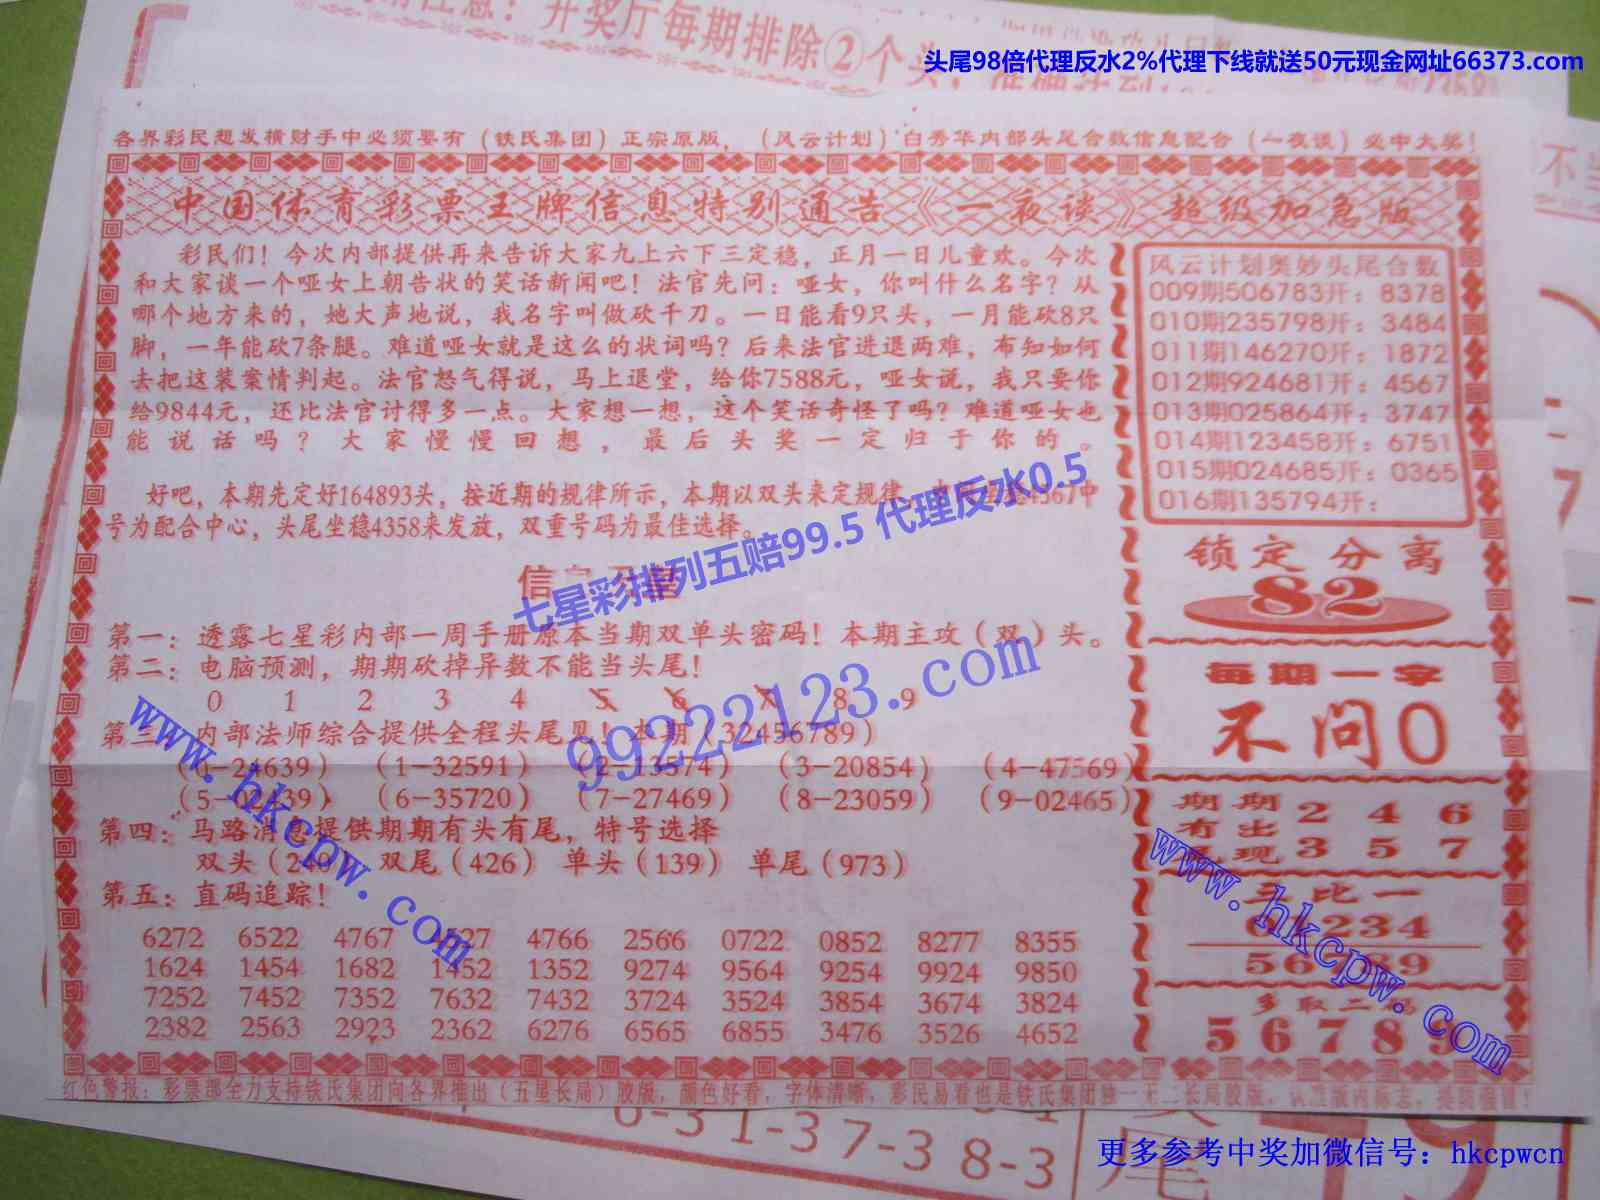 开奖厅每期排除②个头
头尾98倍代理反水2%代理下线就送50元现金网址66373.com
各界彩民想发横财手中必须要有（铁氏集团）正宗原版，（风云计划）白秀华内部头尾合数信息配合（一夜谈）必中大奖！
不当
中国体育彩票王牌信息特别通告《一夜谈》超级加急版
彩民们！今次内部提供再来告诉大家九上六下三定稳，正月一日儿童欢。今次
和大家谈一个哑女上朝告状的笑话新闻吧！法官先问：哑女，你叫什么名字？从
哪个地方来的，她大声地说，我名字叫做砍千刀。一日能看9只头，一月能砍8只
脚，一年能砍7条腿。难道哑女就是这么的状词吗？后来法官进退两难，布知如何
去把这装案情判起。法官怒气得说，马上退堂，给你7588元，哑女说，我只要你
给9844元，还比法官讨得多一点。大家想一想，这个笑话奇怪了吗？难道哑女也
能说话吗？大家慢慢回想，最后头奖一定归于你的。
好吧，本期先定好164893头，按近期的规律所示，本期以双头来定规律
号为配合中心，头尾坐稳4358来发放，双重号码为最佳选择。
七星彩排列五赔99.5 代理反水0.5
第一：透露七星彩内部一周手册原本当期双单头密码！本期主攻（双）头。
第二：电脑预测，期期砍掉异数不能当头尾！
0 1 2 3 4 5 6 7 8 9
第三：内部法师综合提供全程头尾见！本期（32456789）
（1-24639） （1-32591） （2-13574） （3-20854） （4-47569）
（6-35720） （7-27469） （8-23059） （9-02465）
第四：马路消息提供期期有头有尾，特号选择
双头（246） 双尾（426） 单头（139） 单尾（973）
第五：直码追踪！
6272 6522 4767 4766 2566 0722 0852 8277 8355
1624 1454 1682 1452 1352 9274 9564 9254 9924 9850
7252 7452 7352 7632 7432 3724 3524 3854 3674 3824
2382 2563 2923 2362 6276 6565 6855 3476 3526 4652
99222123.com
www.hkcpw.com
风云计划奥妙头尾合数
009期506783开：8378
010期235798开：3484
011期146270开：1872
012期924681开：4567
013期025864开：3747
014期123458开：6751
015期024685开：0365
016期135794开：
锁定分离
82
每期一字
不问0
期期 2 4 6
有出
现 3 5 7
比一
234
多取二
5 6 7 8 9
www.hkcpw.com
红色警报：彩票部全力支持铁氏集团向各界推出（五星长局）胶版，颜色好看，字体清晰，彩民易看也是铁氏集团独一无二长局胶版，认准版内标志，提防假冒！
6-3 1-3 7-3 8-3
尾
更多参考中奖加微信号：hkcpwcn